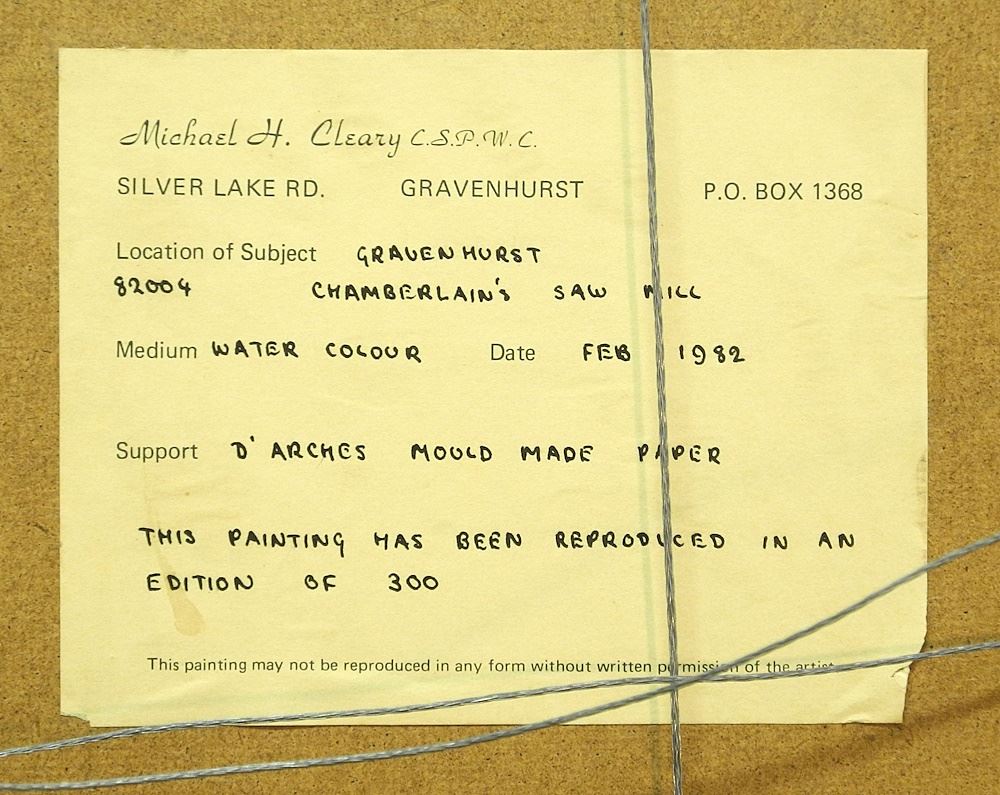 Michael H. Cleary C.S.P.W.C.
SILVER LAKE RD. GRAVENHURST P.O. BOX 1368
Location of Subject GRAVENHURST
82004 CHAMBERLAIN'S SAW MILL
Medium WATER COLOUR Date FEB 1982
Support D'ARCHES MOULD MADE PAPER
THIS PAINTING HAS BEEN REPRODUCED IN AN
EDITION OF 300
This painting may not be reproduced in any form without written permission of the artist.